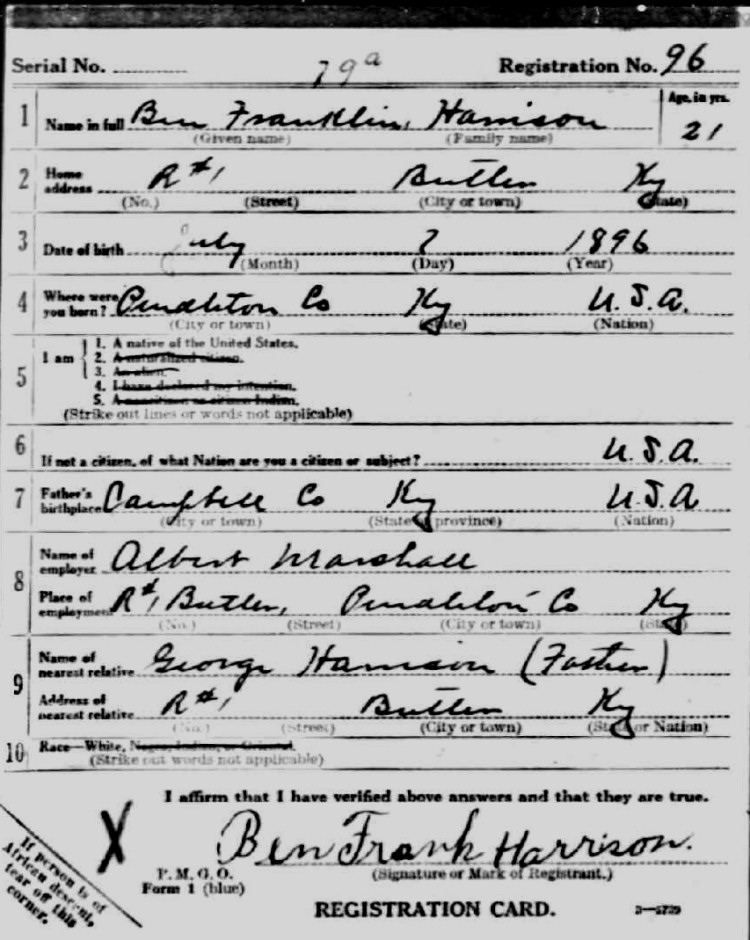 Serial No. 79a Registration No. 96
1 Name in full Ben Franklin, Harrison Age, in yrs. 21
(Given name) (Family name)
2 Home address R#1 Butler Ky
(No.) (Street) (City or town) (State)
3 Date of birth July 7 1896
(Month) (Day) (Year)
4 Where were you born? Pendleton Co Ky U.S.A.
(City or town) (State) (Nation)
5 I am
1. A native of the United States.
2. A naturalized citizen.
3. An alien.
4. I have declared my intention.
5. A noncitizen or citizen Indian.
(Strike out lines or words not applicable)
6 If not a citizen, of what Nation are you a citizen or subject? U.S.A.
7 Father's birthplace Campbell Co Ky U.S.A
(City or town) (State or province) (Nation)
8 Name of employer Albert Marshall
Place of employment R#1 Butler, Pendleton Co Ky
(No.) (Street) (City or town) (State)
9 Name of nearest relative George Harrison (Father)
Address of nearest relative R#1 Butler Ky
(No.) (Street) (City or town) (State or Nation)
10 Race—White, Negro, Indian, or Oriental.
(Strike out words not applicable)
I affirm that I have verified above answers and that they are true.
X Ben Frank Harrison.
(Signature or Mark of Registrant.)
P. M. G. O.
Form 1 (blue)
REGISTRATION CARD.
If person is of
African descent,
tear off this
corner.